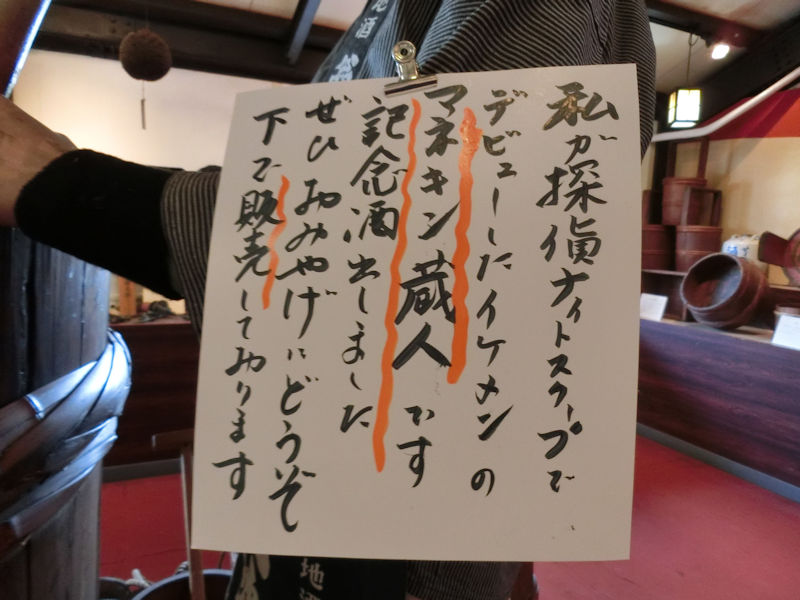 私が探偵ナイトスクープで
デビューしたイケメンの
マネキン蔵人です
記念酒出しました
ぜひおみやげにどうぞ
下で販売しております
地酒
地酒